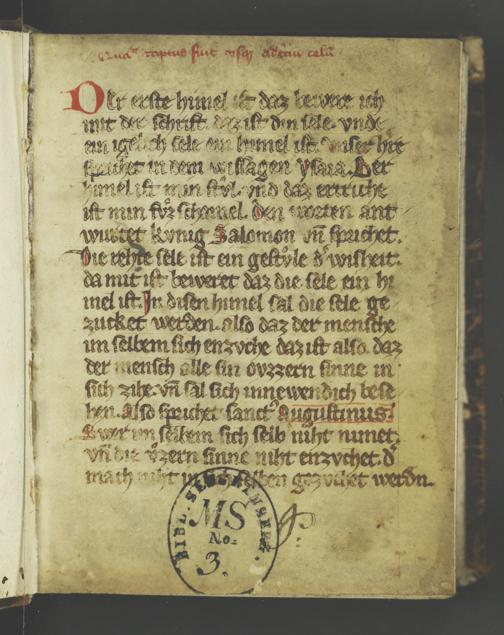 Der erste himel ist daz bewere ich
mit der schrift. daz ist din sele. vnde
ein igelich sele ein himel ist. vnser h're
sprichet in dem wissagen ysaia. Der
himel ist min stvl. vnd daz ertriche
ist min fvz schamel. Den worten ant
wurtet kvnig Salomon vn̄ sprichet.
Die rehte sele ist ein gestvle d' wisheit.
da mit ist beweret daz die sele ein hi
mel ist. In disen himel sal die sele ge
zucket werden. also daz der mensche
im selbem sich enzvche daz ist also. daz
der mensch alle sin ovzzern sinne in
sich zihe. vn̄ sal sich innewendich bese
hen. Also sprichet sanct' Augustinus.
Swer im selbem sich selb niht nimet.
vn̄ die vzern sinne niht enzvchet. d'
mach niht in selben gezvchet werdn.
BIBL.
MS
No:
3.